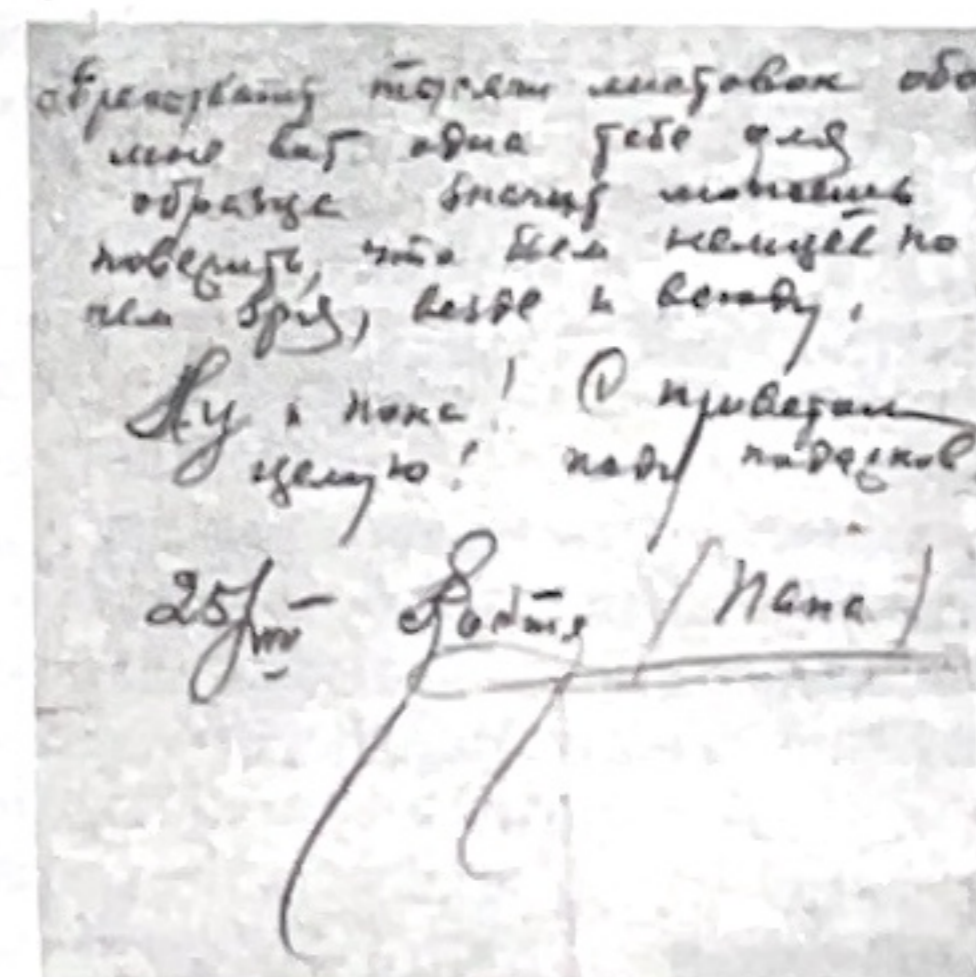 тысячи листовок
мне вот одна тебе для
образца значит можешь
поверить, что бьем немцев по
чем зря, везде и всюду.
Ну и пока! С приветом
целую!
25/VIII Костя /Папа/